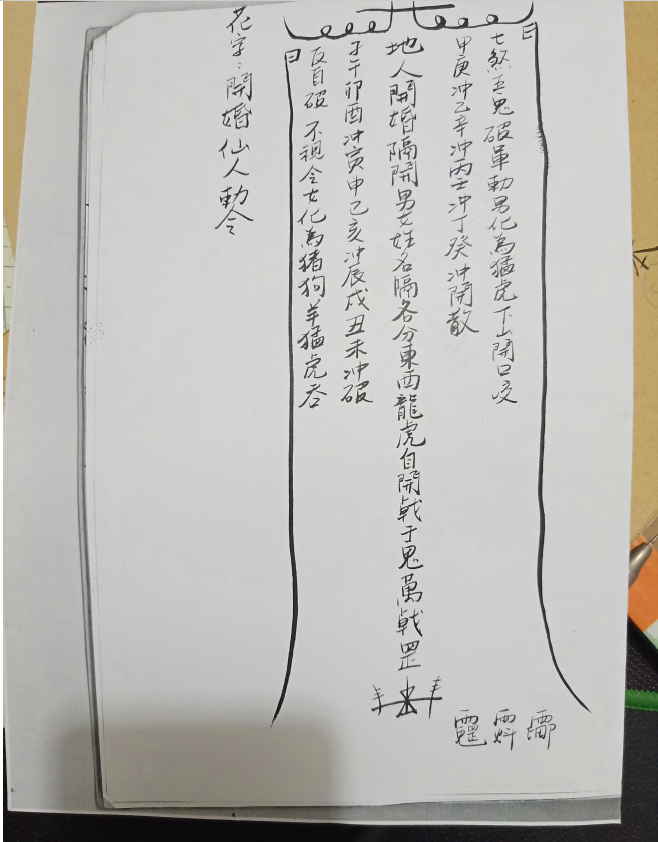 日
七煞五鬼破軍動男化為猛虎下山開口咬
甲庚冲乙辛冲丙壬冲丁癸冲開散
地人開婚隔開男女姓名隔各分東西龍虎自開戟于鬼萬戟罡
子午卯酉冲寅申己亥冲辰戌丑未冲破
日
反目破不視令女化為猪狗羊猛虎吞
花字：開婚仙人勅令